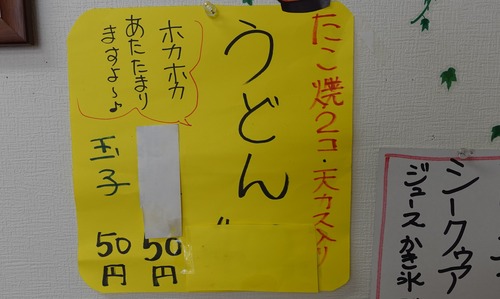 たこ焼2コ・天カス入り
うどん
ホカホカ
あたたまり
ますよ〜♪
50円
玉子
50円
シークヮア
ジュース かき氷